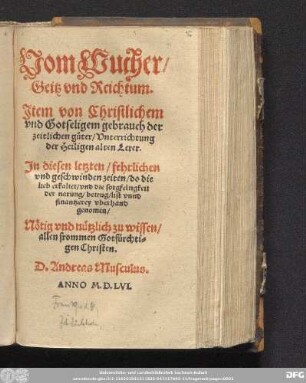 Vom Wucher/
Geitz vnd Reichtum.
Item von Christlichem
vnd Gotseligem gebrauch der
zeitlichen güter/ Vnterrichtung
der Heiligen alten Lerer.
In diesen letzten/ fehrlichen
vnd geschwinden zeiten/ do die
lieb erkaltet/ vnd die sorgfeltigkeit
der narung/ betrug/ list vnnd
finantzerey vberhand
genomen/
Nötig vnd nützlich zu wissen/
allen frommen Gotfürchti-
gen Christen.
D. Andreas Musculus.
ANNO M. D. LVI.
DFG